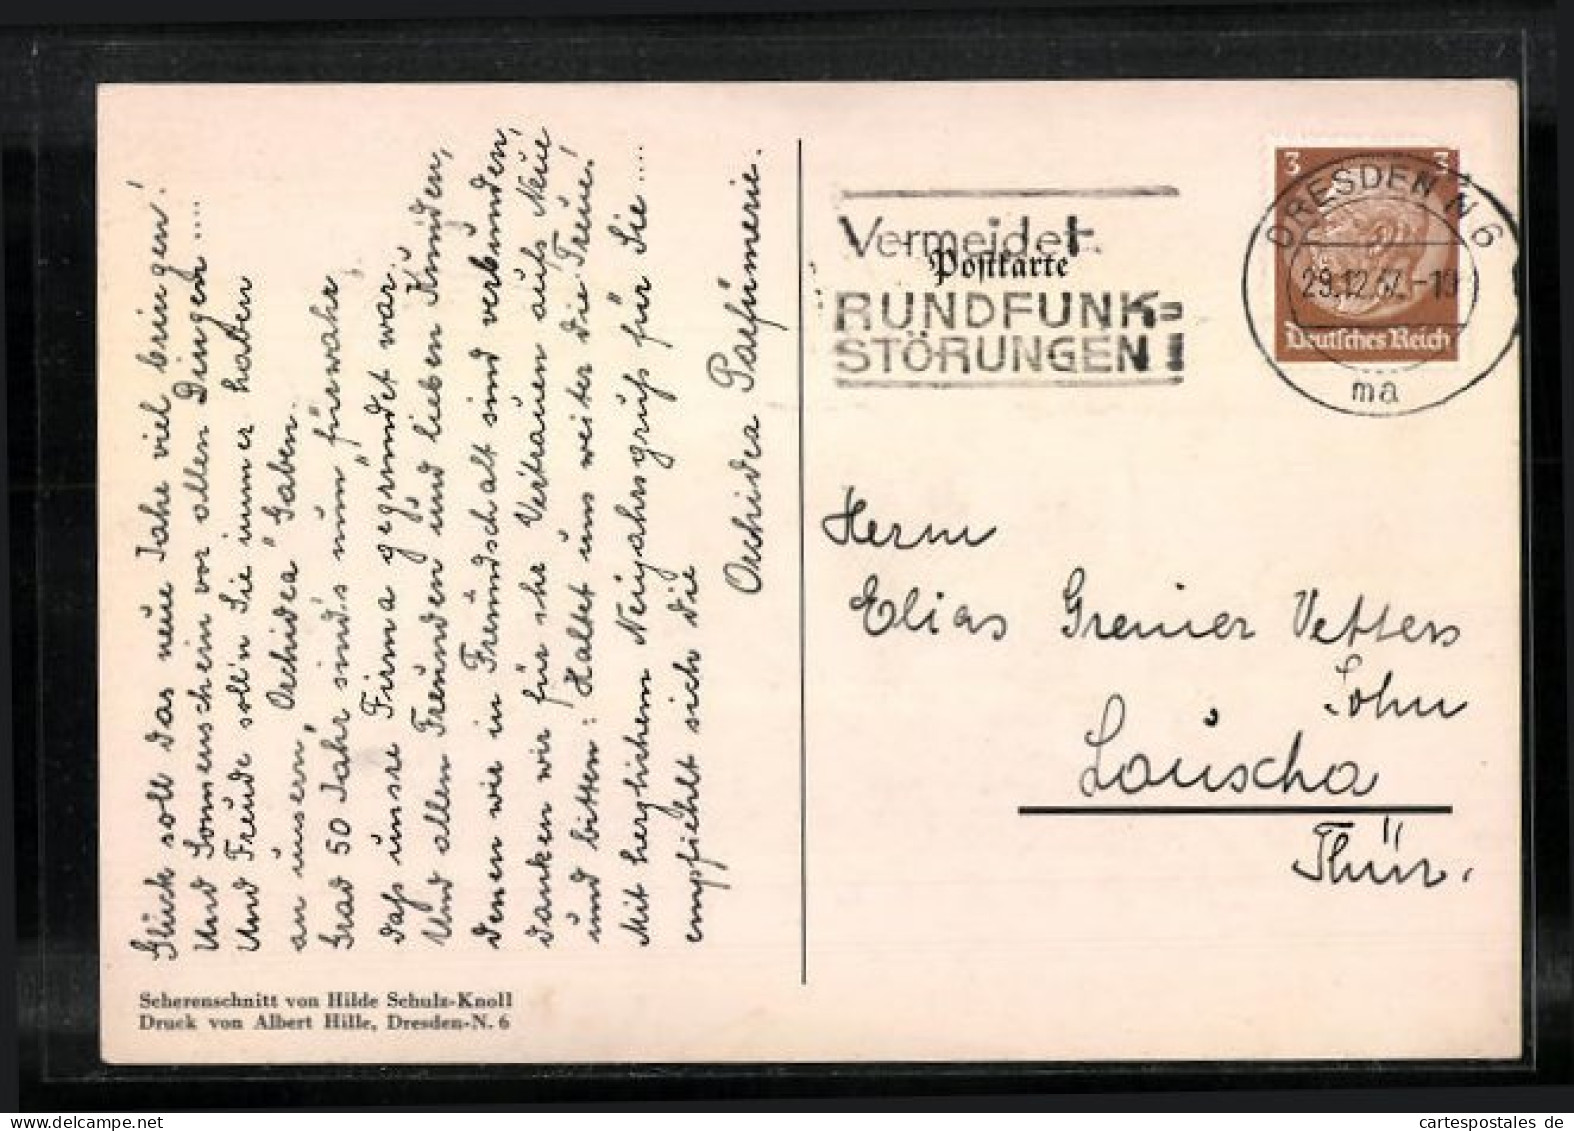 Glück soll das neue Jahr viel bringen!
Und Sonnenschein vor allen Dingen ....
Und Freude soll'n Sie immer haben
an unsern „Orchidea" Gaben.
Grad 50 Jahr sind's nun „fürwahr
daß unsre Firma gegründet war.
Und allen Freunden und lieben Kunden,
denen wir in Freundschaft sind verbunden,
danken wir für ihr Vertrauen aufs Neue
und bitten: Haltet uns weiter die Treue!
Mit herzlichem Neujahrsgruß für Sie ....
empfiehlt sich die
Orchidea Parfümerie.
Scherenschnitt von Hilde Schulz-Knoll
Druck von Albert Hille, Dresden-N. 6
Vermeidet
Postkarte
RUNDFUNK=
STÖRUNGEN!
3 3
DRESDEN N 6
29.12.37.-19
Deutsches Reich
ma
Herrn
Elias Greiner Vetters
Sohn
Lauscha
Thür.
www.cartespostales.de